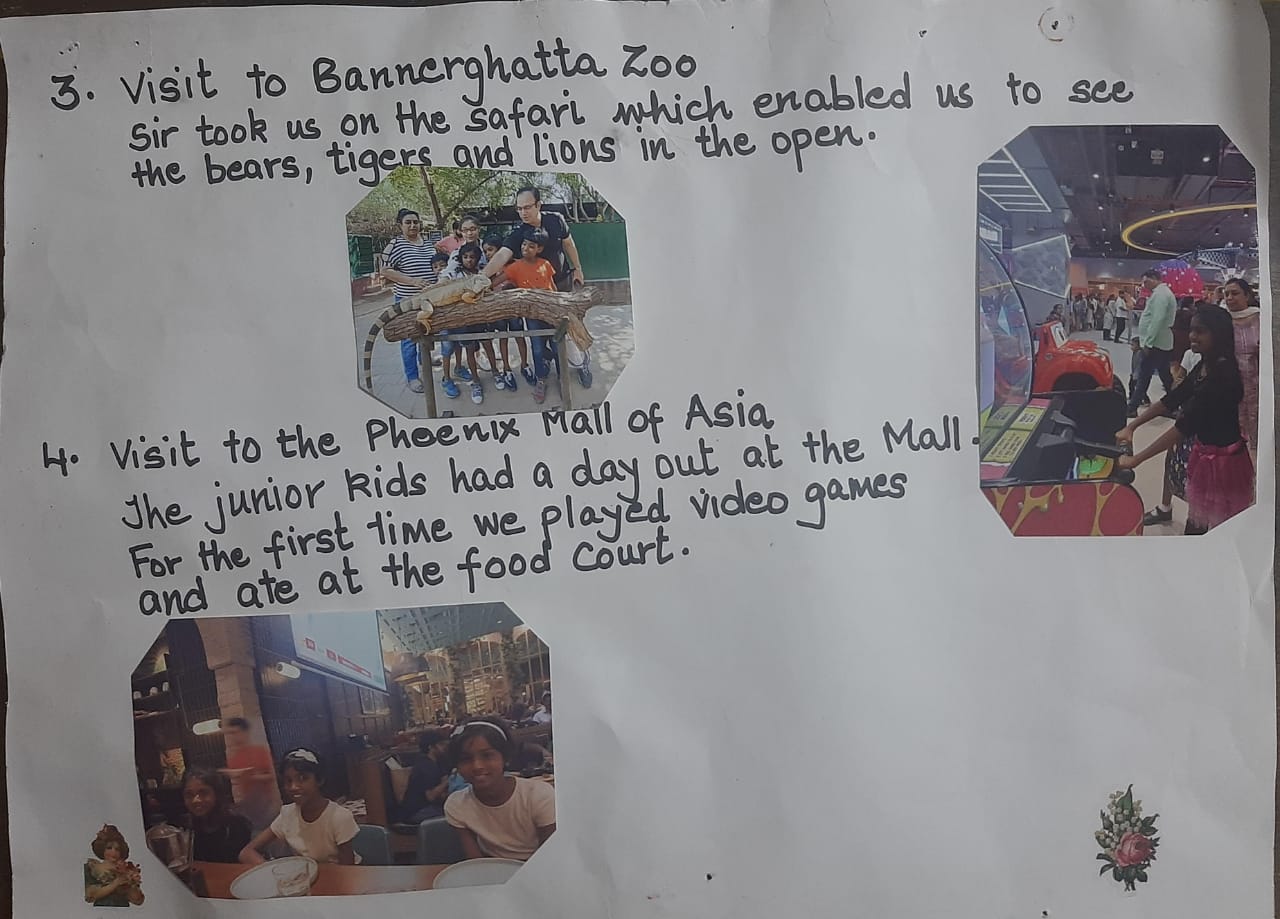 3. Visit to Bannerghatta Zoo
Sir took us on the safari which enabled us to see
the bears, tigers and lions in the open.
4. Visit to the Phoenix Mall of Asia
The junior kids had a day out at the Mall.
For the first time we played video games
and ate at the food court.